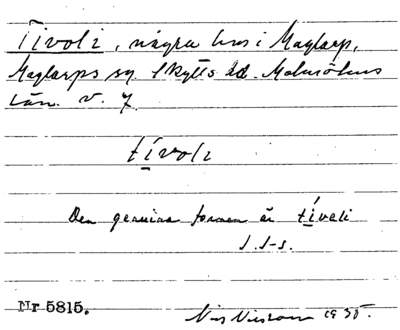 Tivoli, några hus i Maglarp,
Maglarps sn. Skytts hd. Malmöhus
län. v. 7.
tívoli
Den genuina formen är tívoli
J. J-s.
Nr 5815. 1930